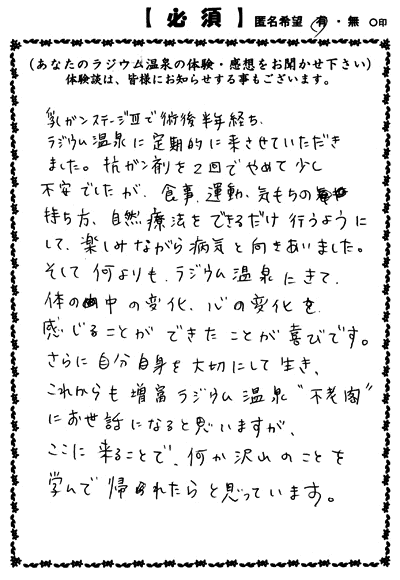 【必須】 匿名希望 有・無 〇印
(あなたのラジウム温泉の体験・感想をお聞かせ下さい)
体験談は、皆様にお知らせする事もございます。
乳ガンステージⅢで術後半年経ち、
ラジウム温泉に定期的に来させていただき
ました。抗ガン剤を2回でやめて少し
不安でしたが、食事、運動、気もちの
持ち方、自然療法をできるだけ行うように
して、楽しみながら病気と向きあいました。
そして何よりも、ラジウム温泉にきて、
体の中の変化、心の変化を
感じることができたことが喜びです。
さらに自分自身を大切にして生き、
これからも増富ラジウム温泉“不老閣”
にお世話になると思いますが、
ここに来ることで、何か沢山のことを
学んで帰られたらと思っています。